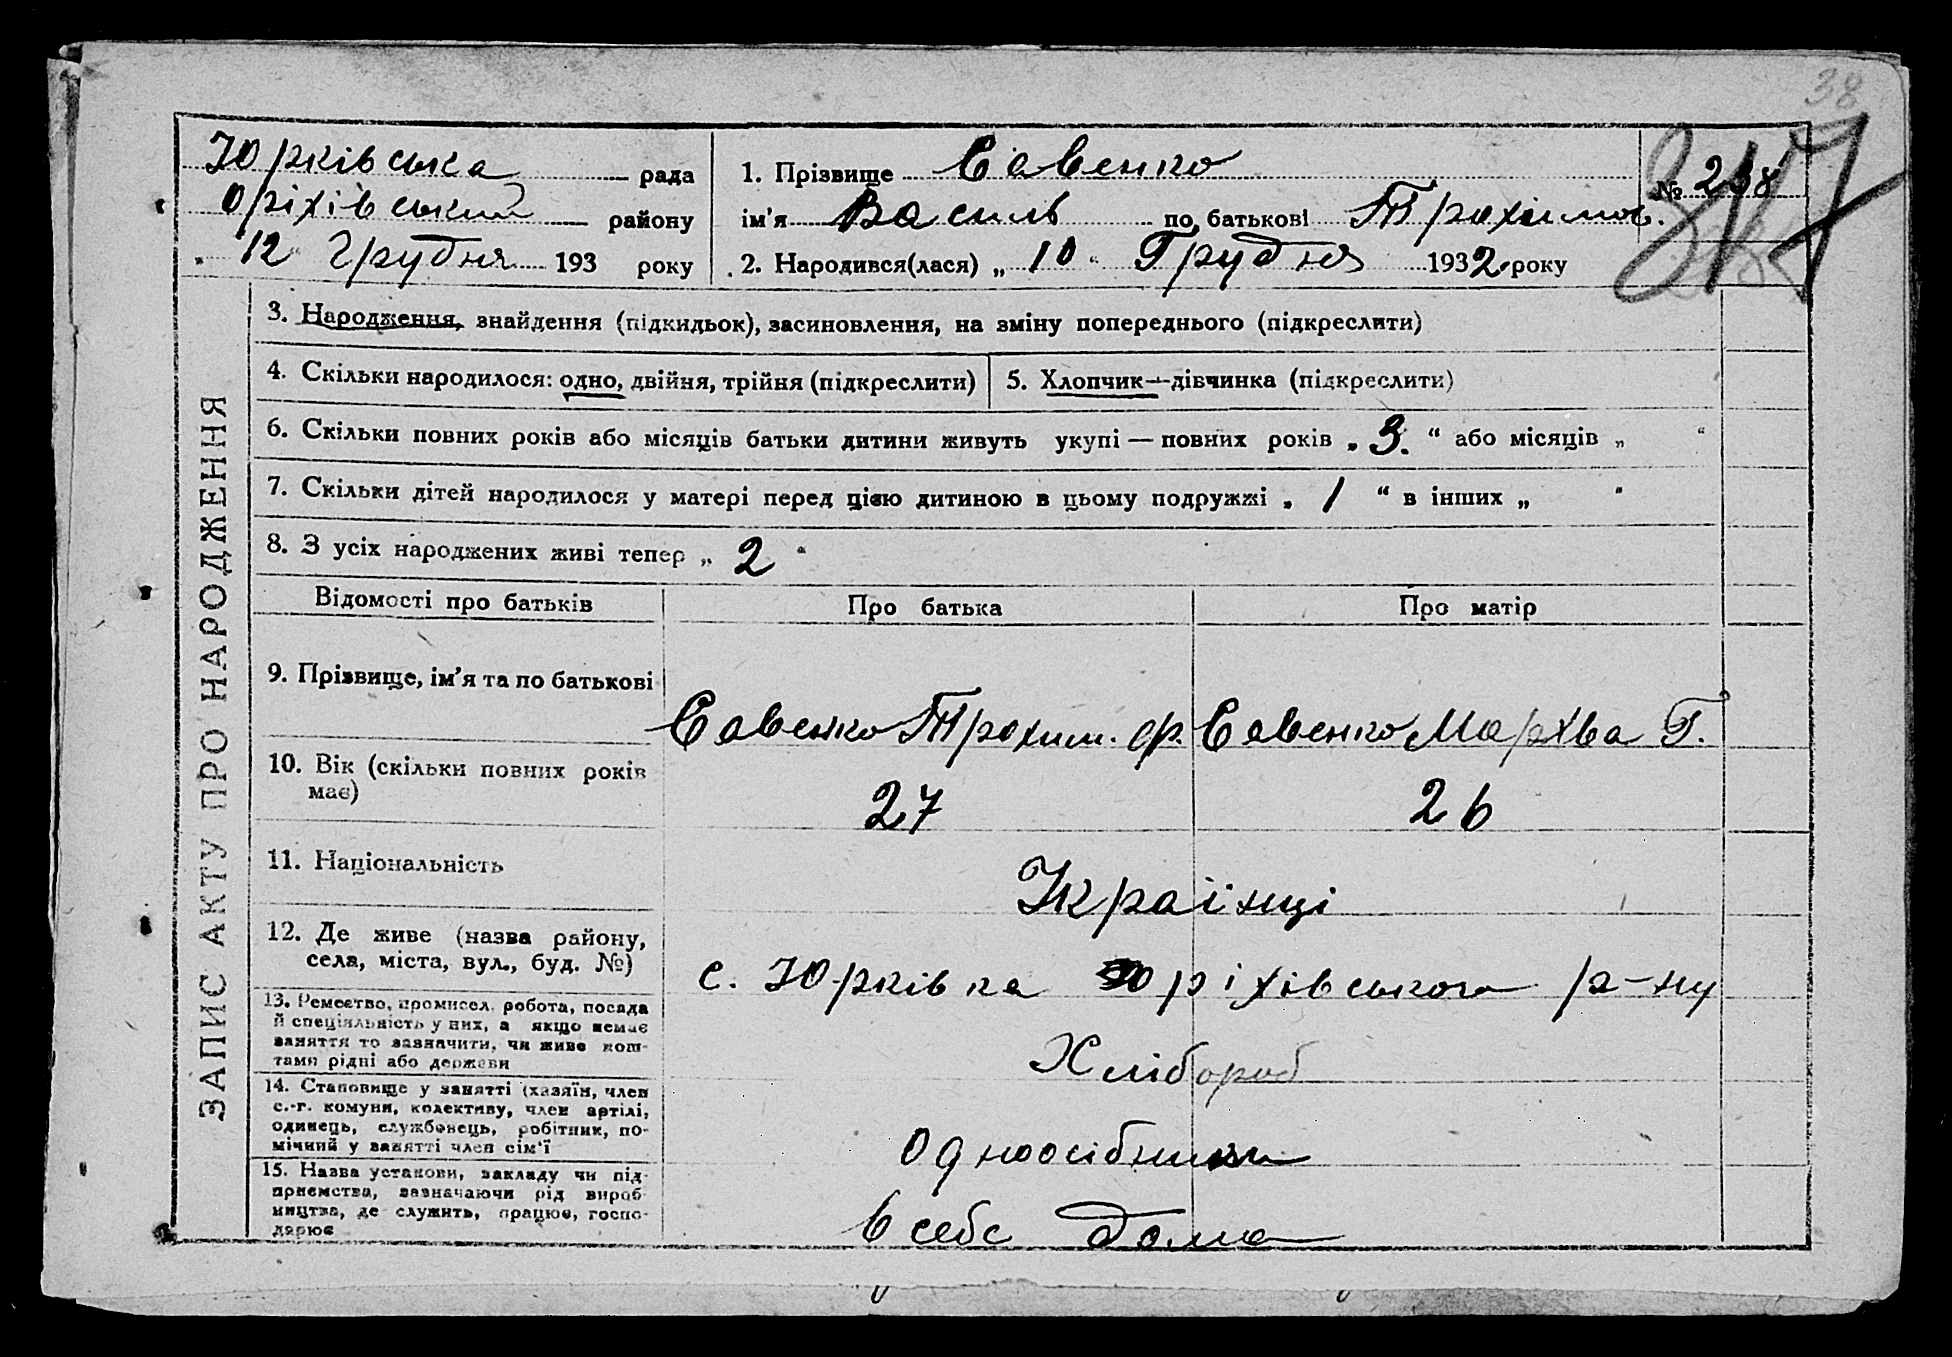 38
Юрківська рада
Оріхівський району
"12" Грудня 193 року
1. Прізвище Савенко
ім'я Василь по батькові Трохимов.
2. Народився(лася) „10" Грудня 1932 року
№
ЗАПИС АКТУ ПРО НАРОДЖЕННЯ
3. Народження, знайдення (підкидьок), засиновлення, на зміну попереднього (підкреслити)
4. Скільки народилося: одно, двійня, трійня (підкреслити)
5. Хлопчик—дівчинка (підкреслити)
6. Скільки повних років або місяців батьки дитини живуть укупі — повних років „3." або місяців „ "
7. Скільки дітей народилося у матері перед цією дитиною в цьому подружжі „1" в інших „ "
8. З усіх народжених живі тепер „2"
Відомості про батьків Про батька Про матір
9. Прізвище, ім'я та по батькові
Савенко Трохим. Ф. Савенко Мархва Г.
10. Вік (скільки повних років
має)
27 26
11. Національність
Українці
12. Де живе (назва району,
села, міста, вул., буд. №)
с. Юрківка Оріхівського р-ну
13. Ремество, промисел, робота, посада
й спеціяльність у них, а якщо немає
заняття то зазначити, чи живе кош-
тами рідні або держави
Хлібороб
14. Становище у занятті (хазяїн, член
с.-г. комуни, колективу, член артілі,
одинець, службовець, робітник, по-
мічний у занятті член сім'ї
Одноосібники
15. Назва установи, закладу чи під-
приємства, зазначаючи рід вироб-
ництва, де служить, працює, госпо-
дарює
в себе дома